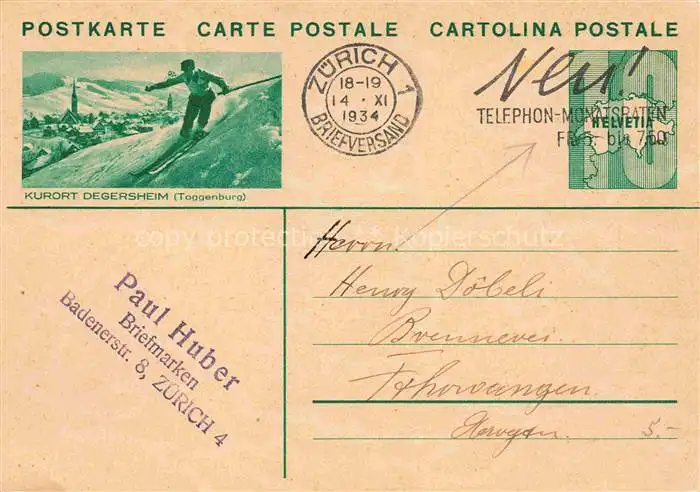 POSTKARTE CARTE POSTALE CARTOLINA POSTALE
KURORT DEGERSHEIM (Toggenburg)
ZÜRICH 1
18-19
14 · XI
1934
BRIEFVERSAND
Neu!
TELEPHON-MONATSRATEN
FR. 5.- bis 7.50
HELVETIA
copy protection ** Kopierschutz
Paul Huber
Briefmarken
Badenerstr. 8, ZÜRICH 4
Herrn
Henry Döbeli
Brennerei
5.-